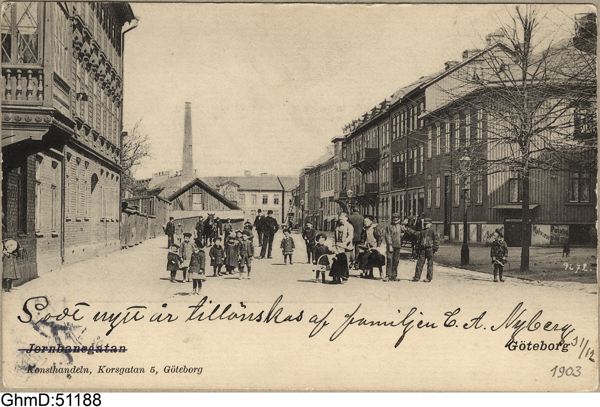 Godt nytt år tillönskas af familjen C. A. Nyberg
31/12
Jernbanegatan
Göteborg
1903
Konsthandeln, Korsgatan 5, Göteborg
GhmD:51188